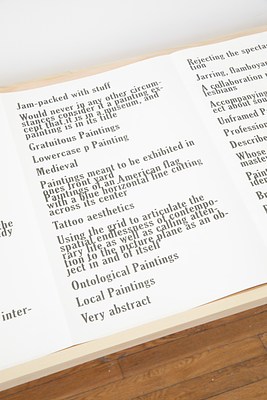 Jam-packed with stuff
Would never in any other circum-
stances consider it a painting ex-
cept that it is in a museum, and
painting is in its title
Gratuitous Paintings
Lowercase p Painting
Medieval
Paintings meant to be exhibited in
ones front yard
Paintings of an American flag
with a blue horizontal line cutting
across its center
Tattoo aesthetics
Using the grid to articulate the
spatial endlessness of contempo-
rary life as well as calling atten-
tion to the picture plane as an ob-
ject in and of itself
Ontological Paintings
Local Paintings
Very abstract
the
inter-
Rejecting the
tion
Jarring,
A collaboration
lesbians
Accompanying
ect about
Unframed
Whose